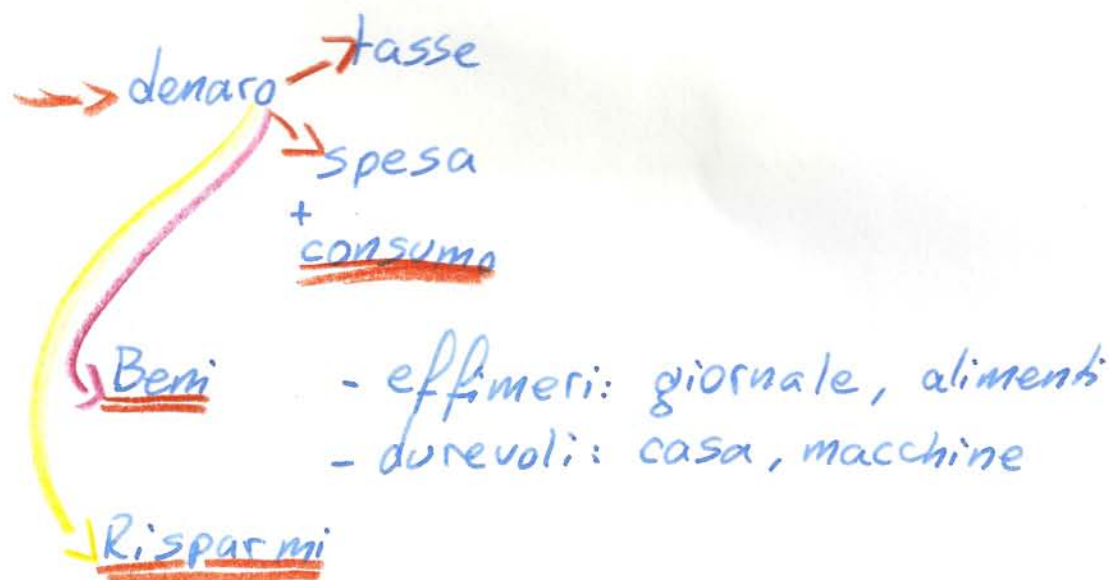 tasse
denaro
spesa
+
consumo
Beni - effimeri: giornale, alimenti
- durevoli: casa, macchine
Risparmi